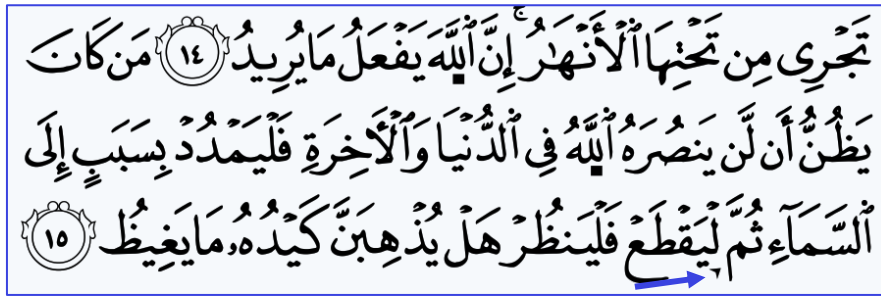 تَجۡرِی مِن تَحۡتِهَا ٱلۡأَنۡهَٰرُۚ إِنَّ ٱللَّهَ یَفۡعَلُ مَا یُرِیدُ ١٤ مَن كَانَ
یَظُنُّ أَن لَّن یَنصُرَهُ ٱللَّهُ فِی ٱلدُّنۡیَا وَٱلۡأٓخِرَةِ فَلۡیَمۡدُدۡ بِسَبَبٍ إِلَى
ٱلسَّمَآءِ ثُمَّ لۡیَقۡطَعۡ فَلۡیَنظُرۡ هَلۡ یُذۡهِبَنَّ كَیۡدُهُۥ مَا یَغِیظُ ١٥